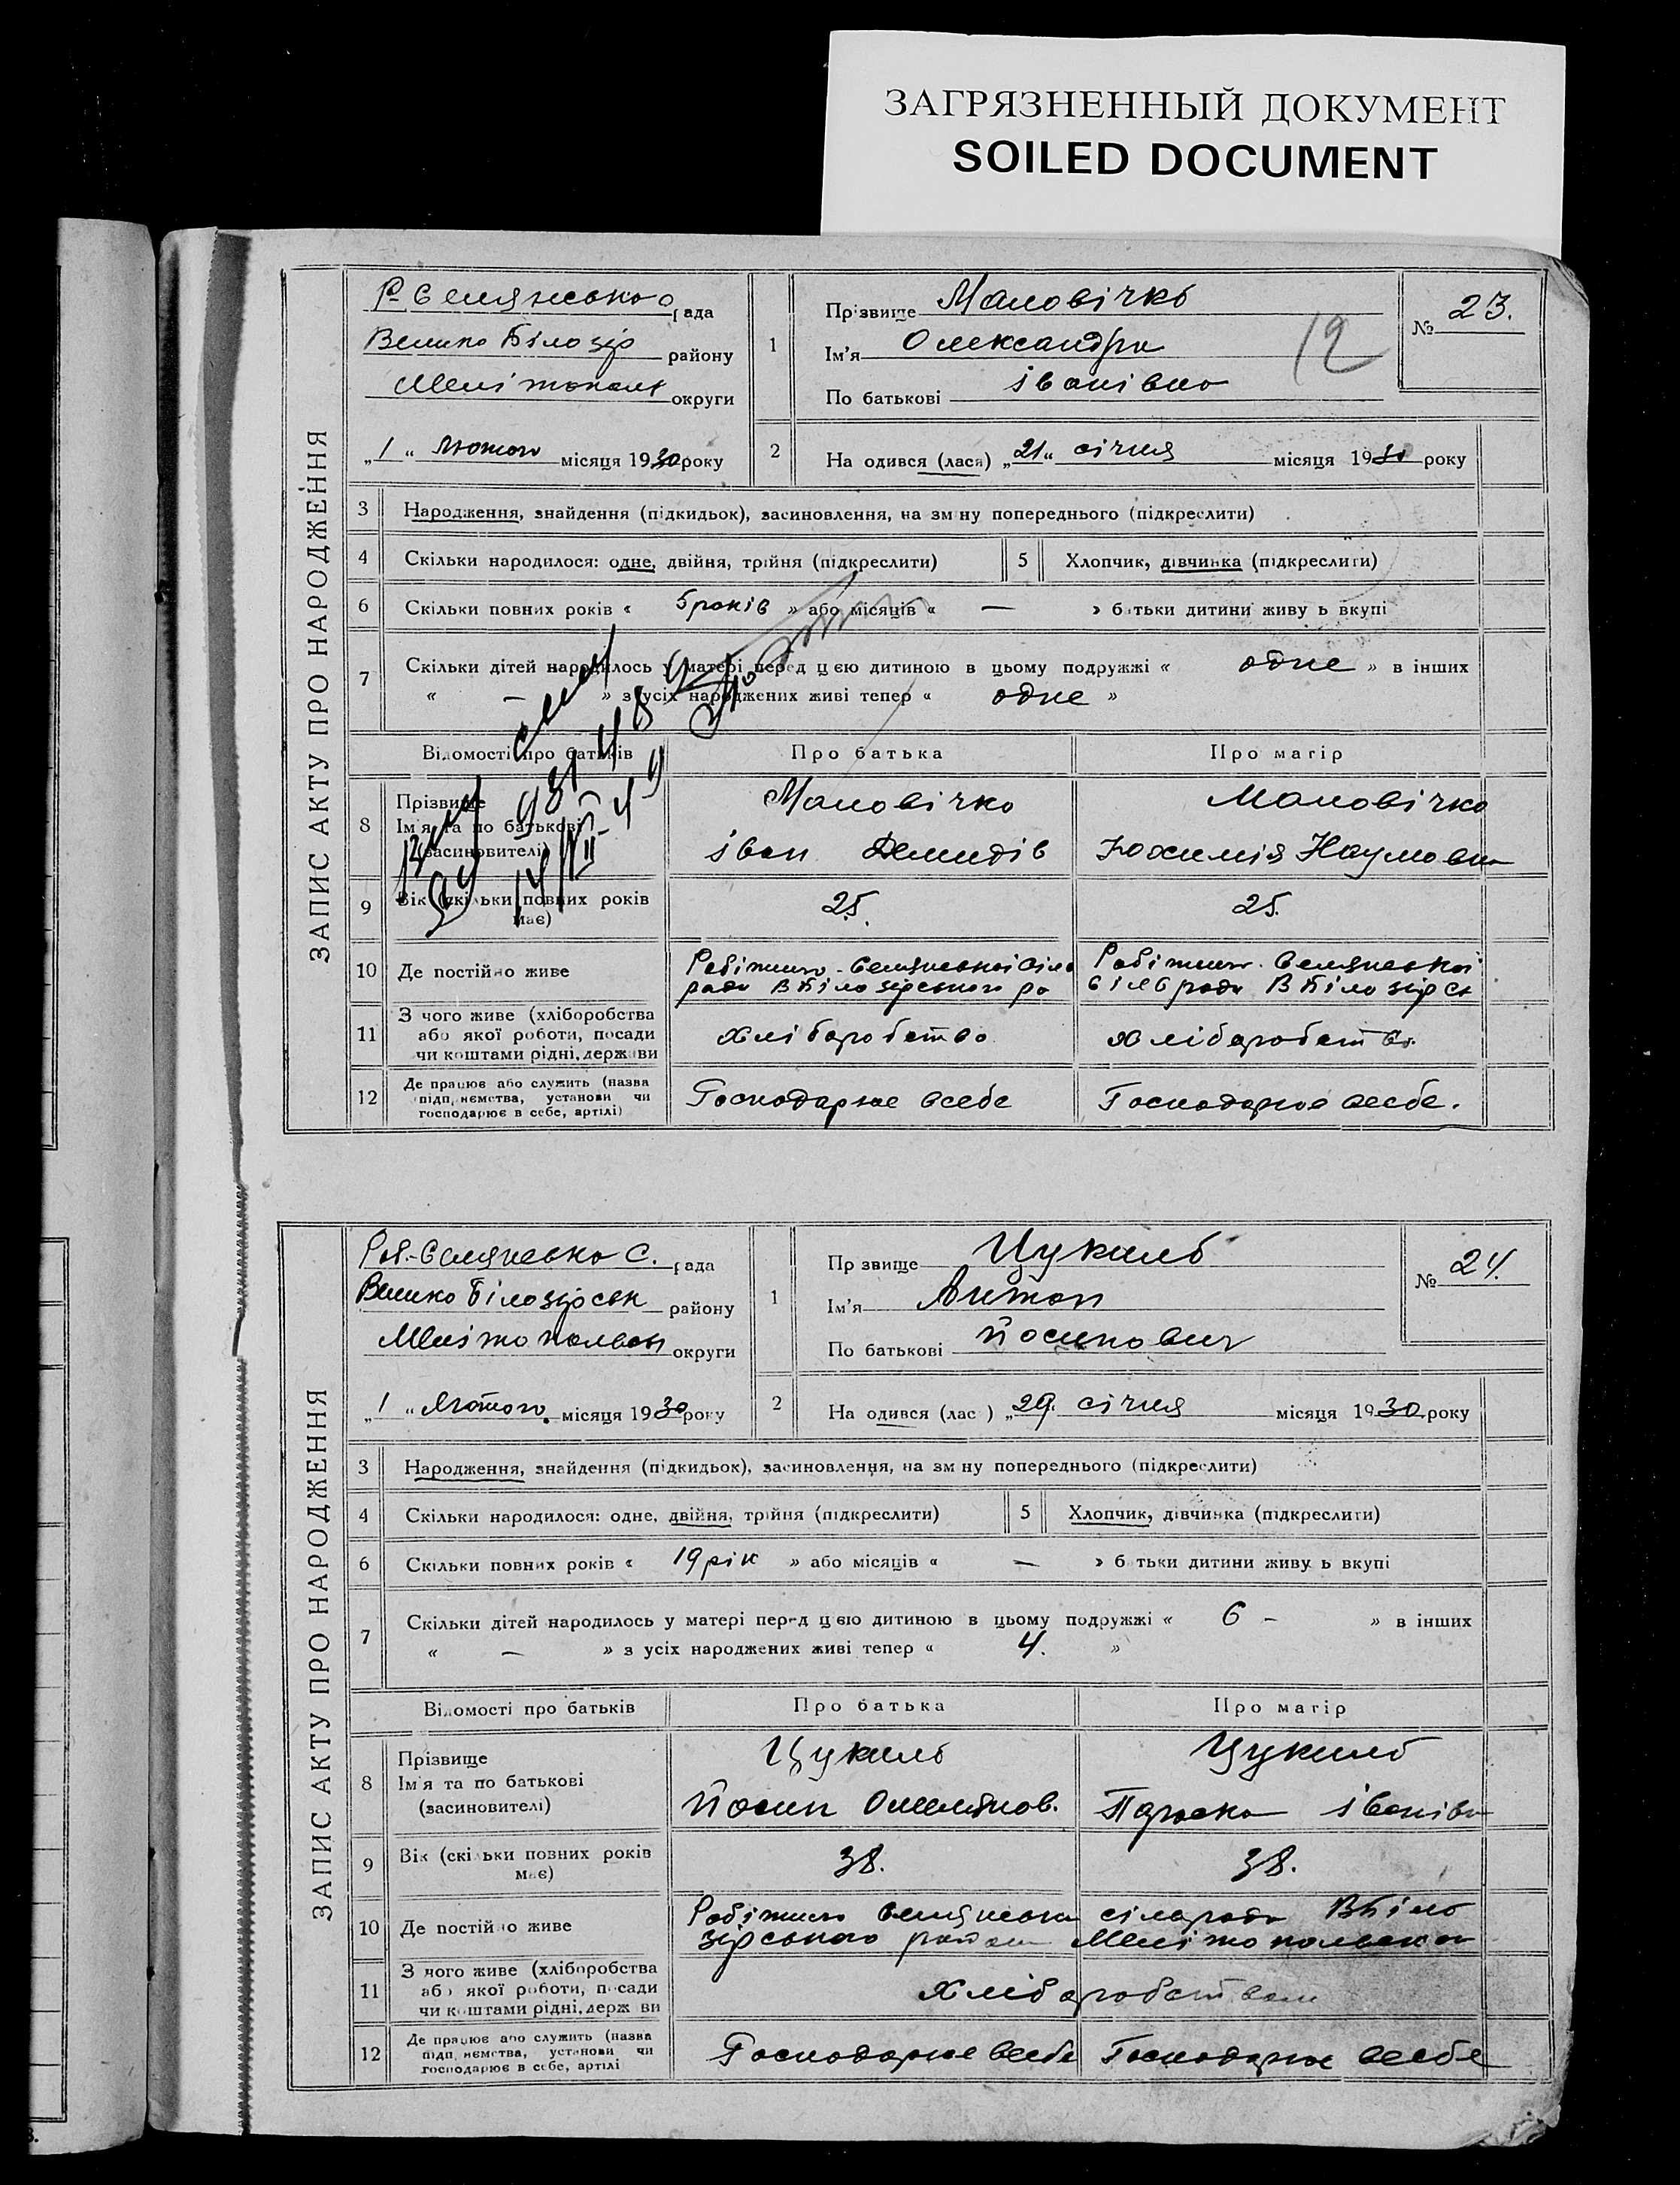 ЗАГРЯЗНЕННЫЙ ДОКУМЕНТ
SOILED DOCUMENT
ЗАПИС АКТУ ПРО НАРОДЖЕННЯ
Р-Селянсько рада
Велико Білозір району
Мелітопольс округи
„1“ Лютого місяця 1930 року
1
Прізвище Маловічко
Ім'я Олександра
По батькові іванівна
12
№ 23.
2
На одився (лася) „21“ січня місяця 1930 року
3 Народження, знайдення (підкидьок), засиновлення, на зм ну попереднього (підкреслити)
4 Скільки народилося: одне, двійня, трійня (підкреслити)
5 Хлопчик, дівчинка (підкреслити)
6 Скільки повних років « 5 років » або місяців « — » батьки дитини живу ь вкупі
7 Скільки дітей народилось у матері перед цією дитиною в цьому подружжі « одне » в інших
« — » з усіх народжених живі тепер « одне »
Відомості про батьків Про батька Про матір
8 Прізвище
Ім'я та по батькові
(засиновителі)
Маловічко
іван Демидів
Маловічко
Юхимія Наумовна
9 Вік (скільки повних років має)
25. 25.
10 Де постійно живе
Робітничо-Селянської сіль
ради ВБілозірського ра
Робітничо-Селянської
сільради ВБілозірсь
11 З чого живе (хліборобства
або якої роботи, посади
чи коштами рідні, держави
хліборобство
хліборобство
12 Де працює або служить (назва
підприємства, установи чи
господарює в себе, артілі)
Господарює всебе
Господарює всебе.
ЗАПИС АКТУ ПРО НАРОДЖЕННЯ
Роб-Селянська С. рада
Велико Білозірськ району
Мелітопольськ округи
„1“ Лютого місяця 1930 року
1
Пр звище Цукиль
Ім'я Антон
По батькові Йосипович
№ 24.
2
На одився (лас ) „29. січня місяця 1930 року
3 Народження, знайдення (підкидьок), засиновлення, на зм ну попереднього (підкреслити)
4 Скільки народилося: одне, двійня, трійня (підкреслити)
5 Хлопчик, дівчинка (підкреслити)
6 Скільки повних років « 19 рік » або місяців « — » б тьки дитини живу ь вкупі
7 Скільки дітей народилось у матері перед цією дитиною в цьому подружжі « 6 - » в інших
« — » з усіх народжених живі тепер « 4. »
Відомості про батьків Про батька Про матір
8 Прізвище
Ім'я та по батькові
(засиновителі)
Цукиль
Йосип Омелянов.
Цукиль
Параска іванівн
9 Вік (скільки повних років має)
38. 38.
10 Де постійно живе
Робітничо Селянська сільради ВБіло
зірського району Мелітопольськ
11 З чого живе (хліборобства
або якої роботи, посади
чи коштами рідні, держ ви
хліборобством
12 Де працює або служить (назва
підп иємства, установи чи
господарює в себе, артілі
Господарює всебе
Господарює всебе